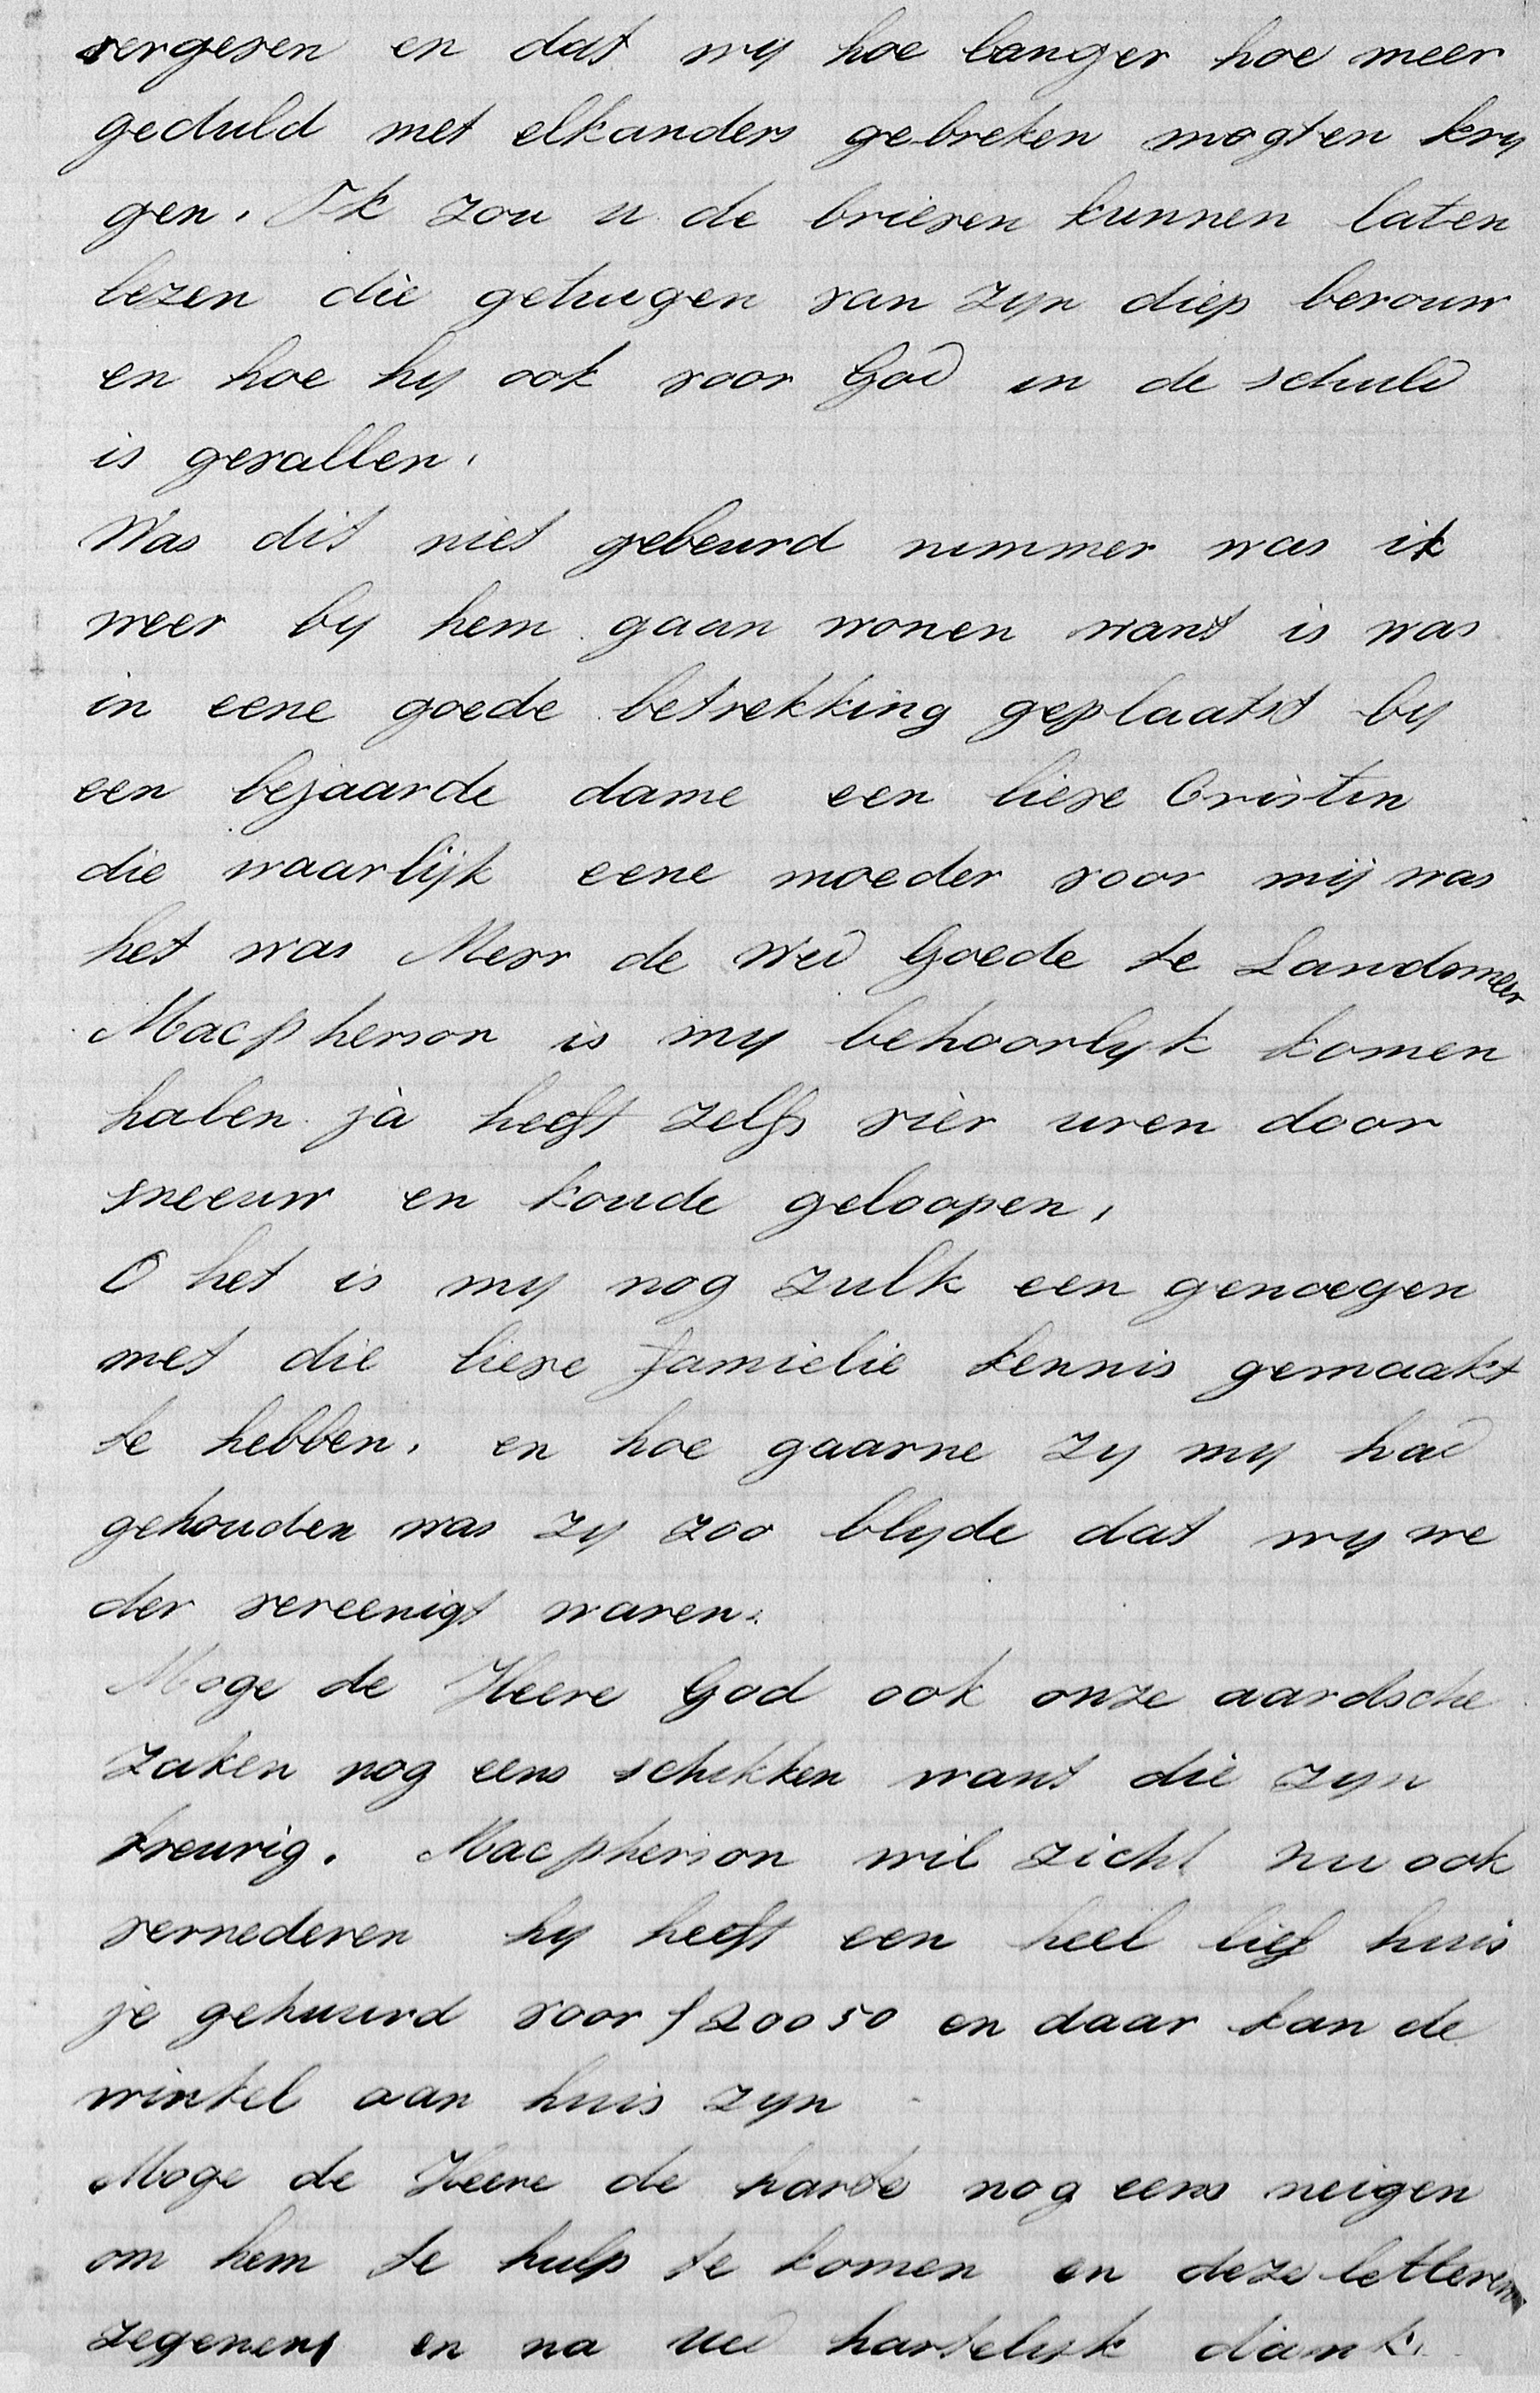 vergeven en dat wij hoe langer hoe meer
geduld met elkanders gebreken mogten krij
gen. Ik zou u de brieven kunnen laten
lezen die getuigen van zijn diep berouw
en hoe hij ook voor God in de schuld
is gevallen.
Was dit niet gebeurd nimmer was ik
weer bij hem gaan wonen want is was
in eene goede betrekking geplaatst bij
een bejaarde dame een lieve Cristin
die waarlijk eene moeder voor mij was
het was Mevr de Wed Goede te Landsmeer
Macpherson is mij behoorlijk komen
halen ja heeft zelfs vier uren door
sneeuw en koude geloopen,
O het is mij nog zulk een genoegen
met die lieve famielie kennis gemaakt
te hebben. en hoe gaarne zij mij had
gehouden was zij zoo blijde dat wij we
der vereenigt waren.
Moge de Heere God ook onze aardsche
zaken nog eens schikken want die zijn
treurig. Macpherson wil zicht nu ook
vernederen hij heeft een heel lief huis
je gehuurd voor f 200 50 en daar kan de
winkel aan huis zijn
Moge de Heere de harte nog eens neigen
om hem te hulp te komen en deze letteren
zegenen en na Ued hartelijk dank